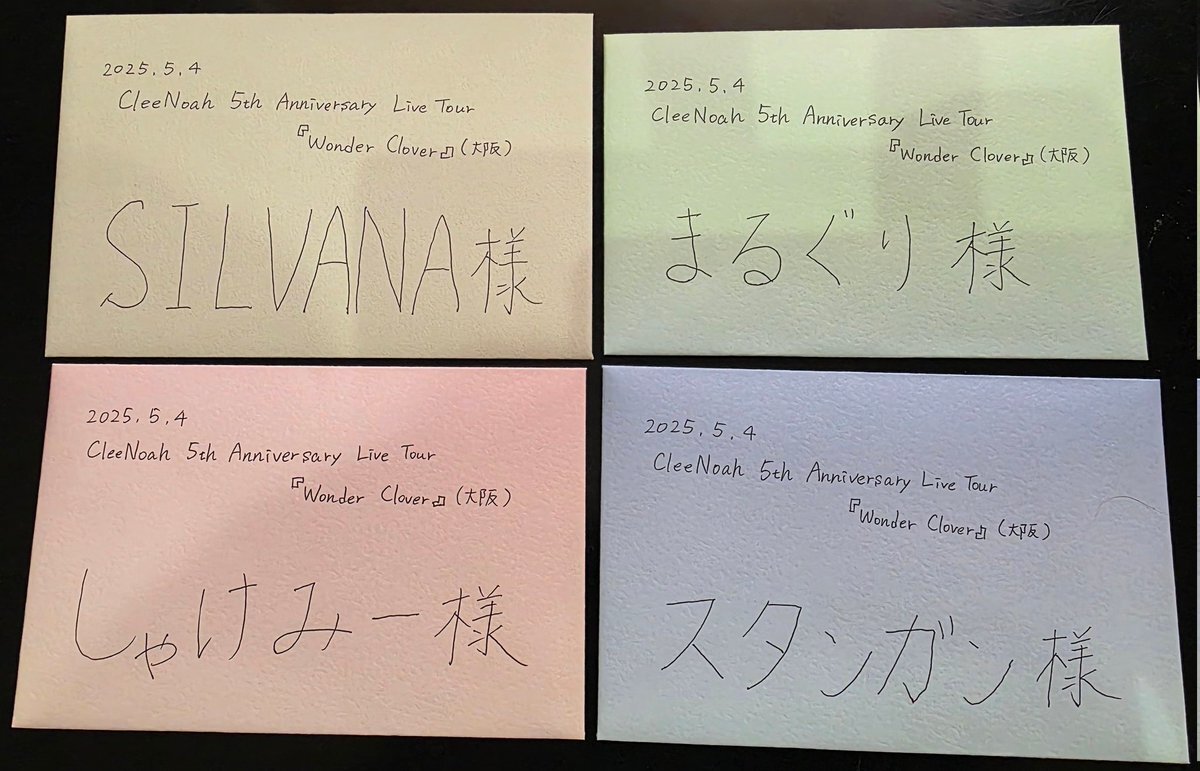 2025.5.4
CleeNoah 5th Anniversary Live Tour
『Wonder Clover』(大阪)
SILVANA様
2025.5.4
CleeNoah 5th Anniversary Live Tour
『Wonder Clover』(大阪)
まるぐり様
2025.5.4
CleeNoah 5th Anniversary Live Tour
『Wonder Clover』(大阪)
しゃけみー様
2025.5.4
CleeNoah 5th Anniversary Live Tour
『Wonder Clover』(大阪)
スタンガン様